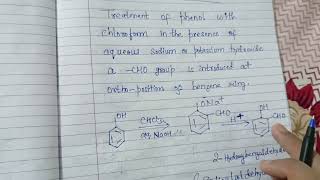 Treatment of phenol with
chloroform in the presence of
aqueous sodium or potasium hydroxide
a -CHO group is introduced at
ortho-position of benzene ring.
OH
CHCl3
aq NaOH
ONa+
CHO
H+
OH
CHO
2-Hydroxybenzaldehyde